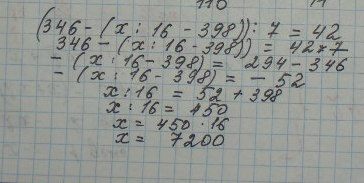 110 11
(346 - (x : 16 - 398)) : 7 = 42
346 - (x : 16 - 398)) = 42 * 7
- (x : 16 - 398) = 294 - 346
- (x : 16 - 398) = - 52
x : 16 = 52 + 398
x : 16 = 450
x = 450 · 16
x = 7200